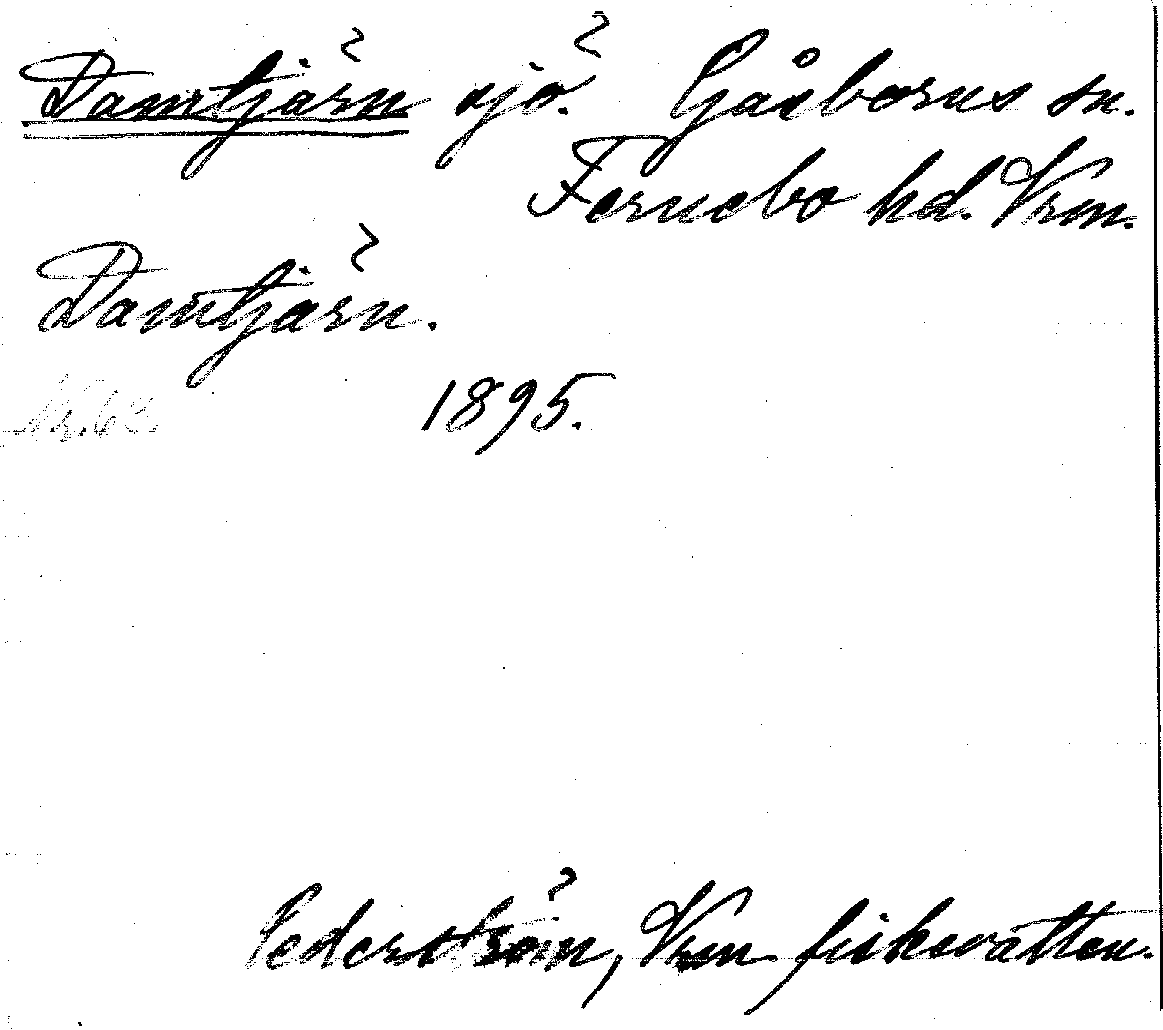 Damtjärn sjö. Gåsborns sn.
Fernebo hd. Vrm.
Damtjärn.
Nr. 63. 1895.
Cederström, Vrm fiskevatten.